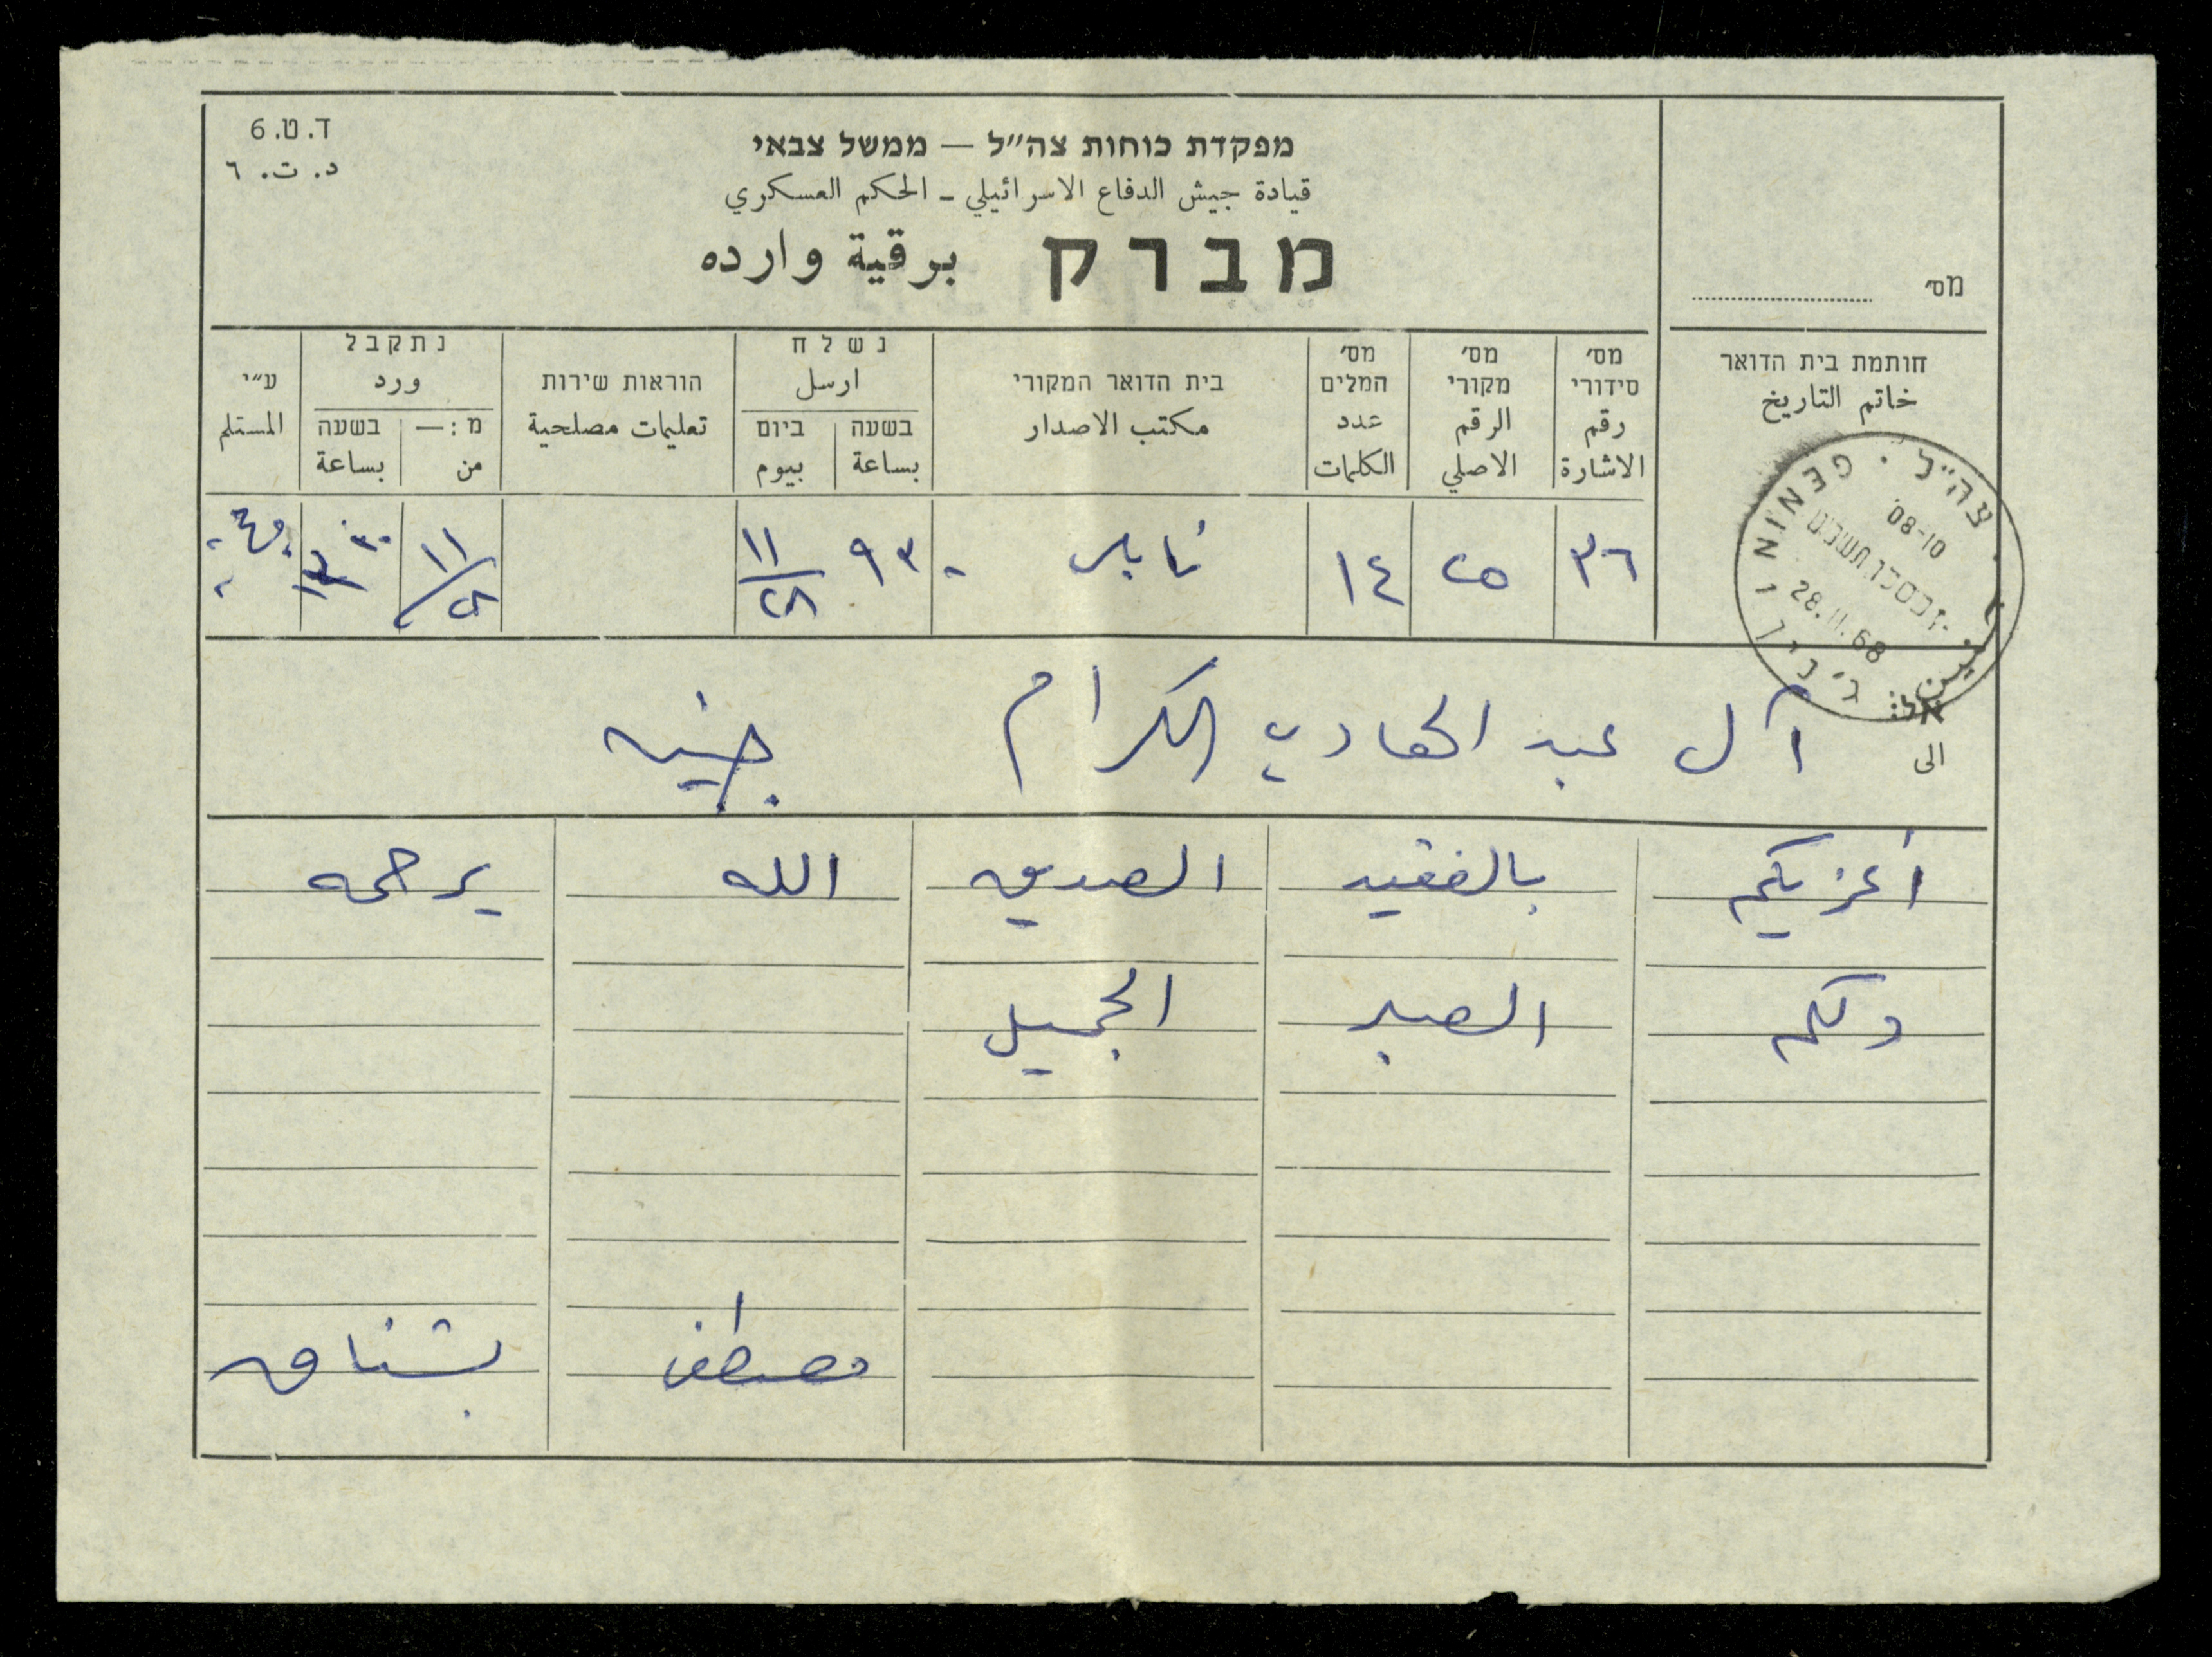 ד.ט.6
د. ت. ٦
מפקדת כוחות צה״ל — ממשל צבאי
قيادة جيش الدفاع الاسرائيلي - الحكم العسكري
מברק برقية وارده
מס׳
חותמת בית הדואר
خاتم التاريخ
מס׳ סידורי رقم الاشارة
מס׳ מקורי الرقم الاصلي
מס׳ המלים عدد الكلمات
בית הדואר המקורי مكتب الاصدار
נשלח ارسل
בשעה بساعة
ביום بيوم
הוראות שירות تعليمات مصلحية
נתקבל ورد
מ:— من
בשעה بساعة
ע״י المستلم
צה״ל
08-10
28.11.68
ג'נין 1 GENIN 1
٣٦ ٢٥ ١٤ نابلس ٩٣٠ ١١/٢٨ ١١/٢٨
אל:
الى آل عبد الهادي الكرام جنين
أعزيكم بالفقيد الصديق الله يرحمه
ولكم الصبر الجميل
مصطفى بشناق